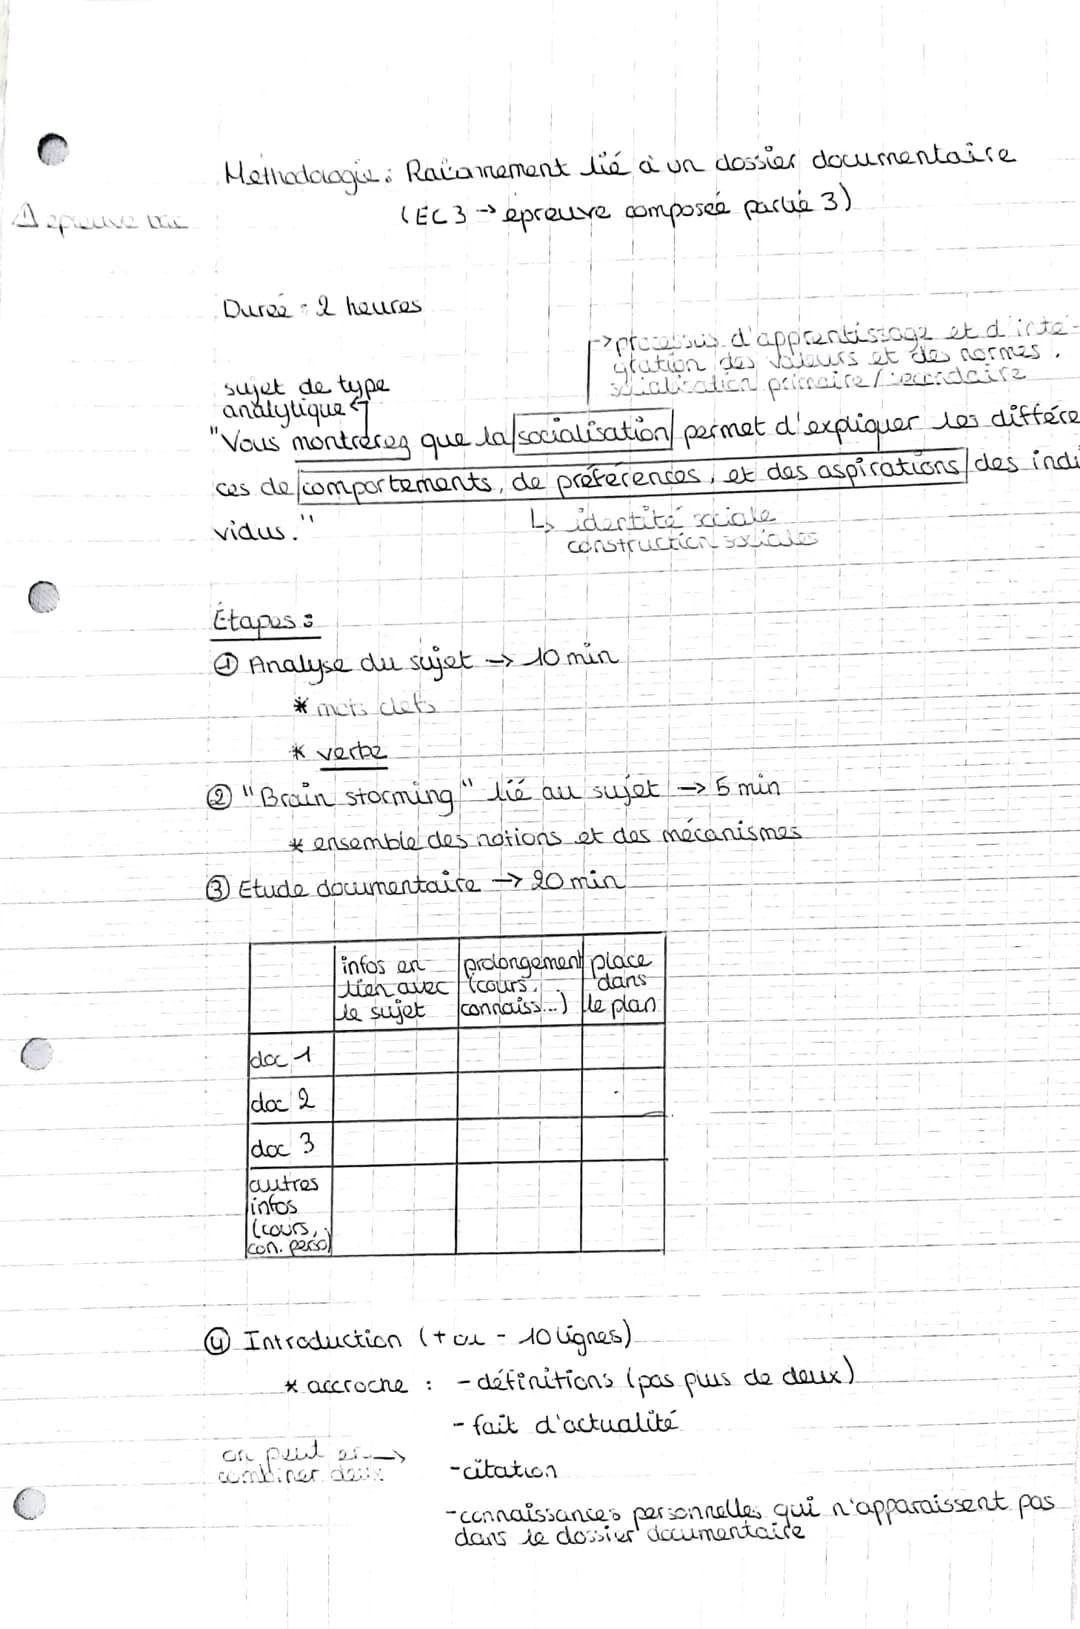 Méthodologie : Raisonnement lié à un dossier documentaire
(EC3 → épreuve composée partie 3)
épreuve bac
Durée : 2 heures
→ processus d'apprentissage et d'inté-
gration des valeurs et des normes.
socialisation primaire/secondaire
sujet de type
analytique
"Vous montrerez que la socialisation permet d'expliquer les différe
ces de comportements, de préférences, et des aspirations des indi
vidus."
↳ identité sociale
construction sociales
Étapes :
① Analyse du sujet → 10 min
* mots clefs
* verbe
② "Brain storming" lié au sujet → 5 min
* ensemble des notions et des mécanismes
③ Etude documentaire → 20 min
infos en lien avec le sujet | prolongement (cours, connaiss...) | place dans le plan
doc 1
doc 2
doc 3
autres
infos
(cours,
con. perso)
④ Introduction (+ ou - 10 lignes)
* accroche : - définitions (pas plus de deux)
- fait d'actualité
on peut en →
combiner deux
- citation
- connaissances personnelles qui n'apparaissent pas
dans le dossier documentaire